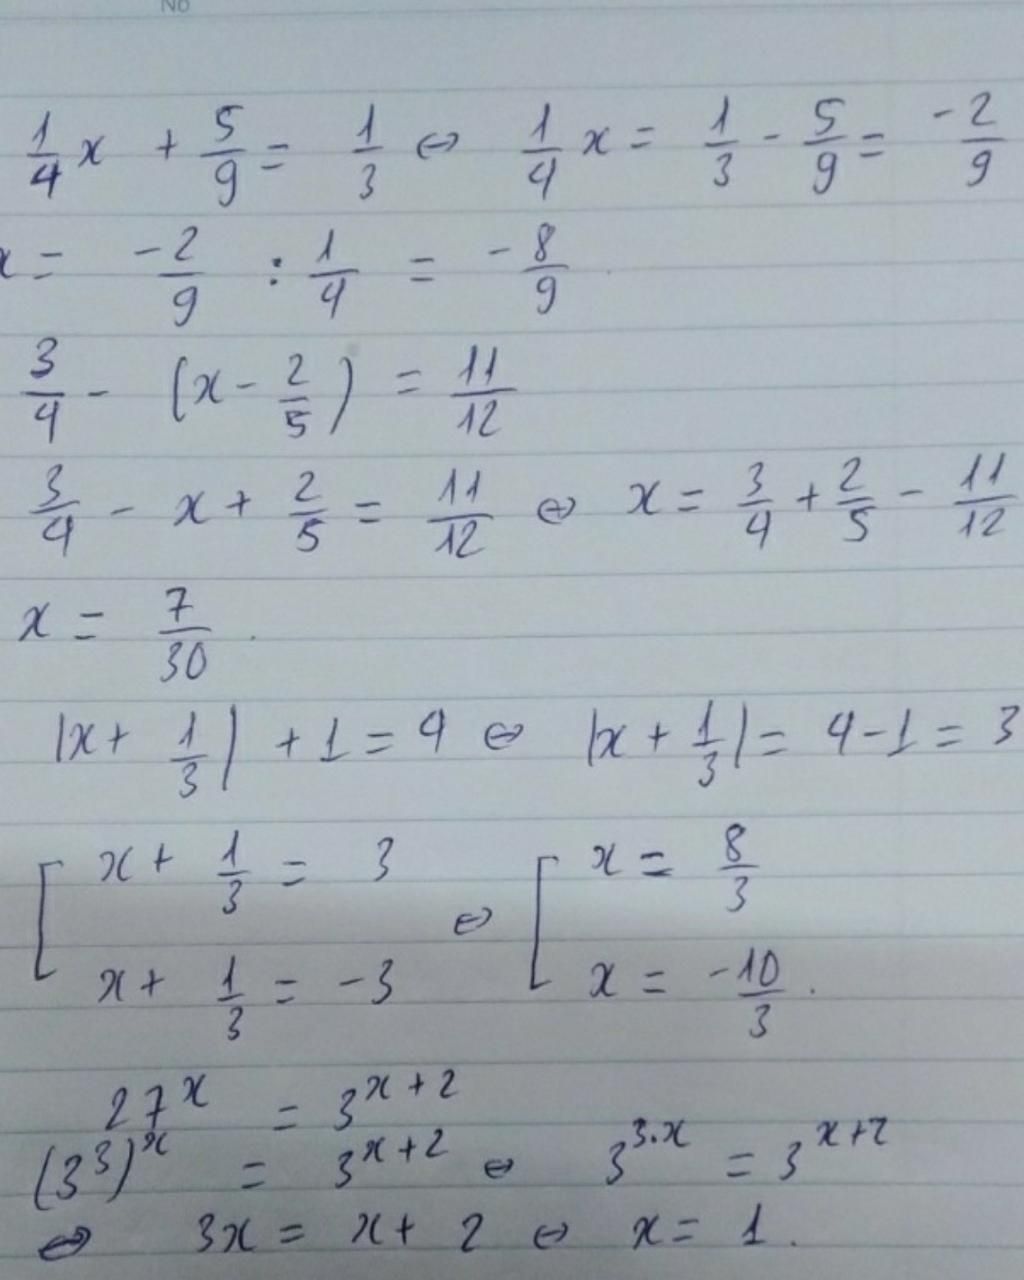 No
1/4 x + 5/9 = 1/3 ⇔ 1/4 x = 1/3 - 5/9 = -2/9
x = -2/9 : 1/4 = -8/9
3/4 - (x - 2/5) = 11/12
3/4 - x + 2/5 = 11/12 ⇔ x = 3/4 + 2/5 - 11/12
x = 7/30.
|x + 1/3| + 1 = 4 ⇔ |x + 1/3| = 4 - 1 = 3
[ x + 1/3 = 3 ⇔ [ x = 8/3
x + 1/3 = -3 x = -10/3.
27^x = 3^(x+2)
(3^3)^x = 3^(x+2) ⇔ 3^(3.x) = 3^(x+2)
⇔ 3x = x + 2 ⇔ x = 1.